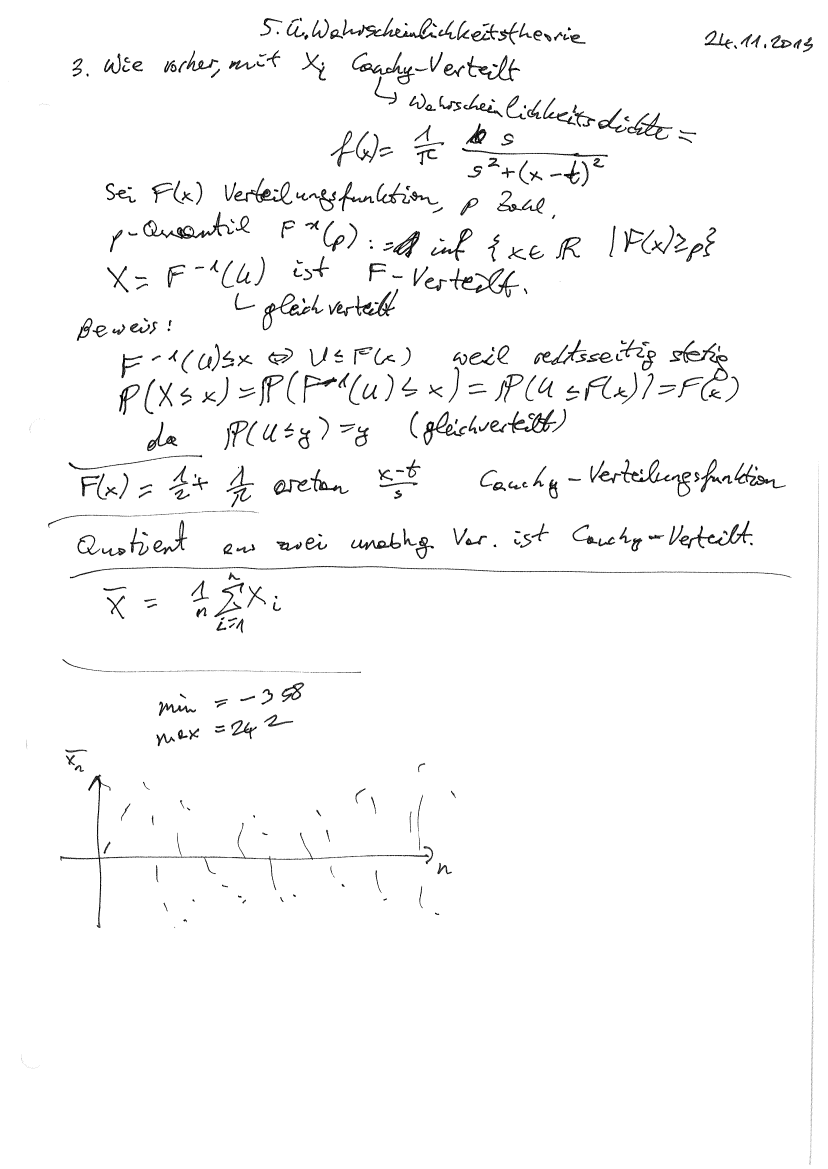 5. Ü. Wahrscheinlichkeitstheorie 24.11.2013
3. Wie vorher, mit Xi Cauchy-Verteilt
↳ Wahrscheinlichkeitsdichte =
f(x) = 1/π s/(s²+(x-t)²)
Sei F(x) Verteilungsfunktion, p Zahl,
p-Quantil F⁻¹(p) := inf {x∈ ℝ | F(x)≥p}
X = F⁻¹(U) ist F-Verteilt.
↳ gleichverteilt
Beweis:
F⁻¹(U)≤x ⇔ U≤F(x) weil rechtsseitig stetig
ℙ(X≤x) = ℙ(F⁻¹(U)≤x) = ℙ(U≤F(x)) = F(x)
da ℙ(U≤y) = y (gleichverteilt)
F(x) = 1/2 + 1/π arctan (x-t)/s Cauchy-Verteilungsfunktion
Quotient aus zwei unabhg. Var. ist Cauchy-Verteilt.
X̄ = 1/n ∑ᵢ₌₁ⁿ Xi
min = -358
max = 242
x̄ₙ
n